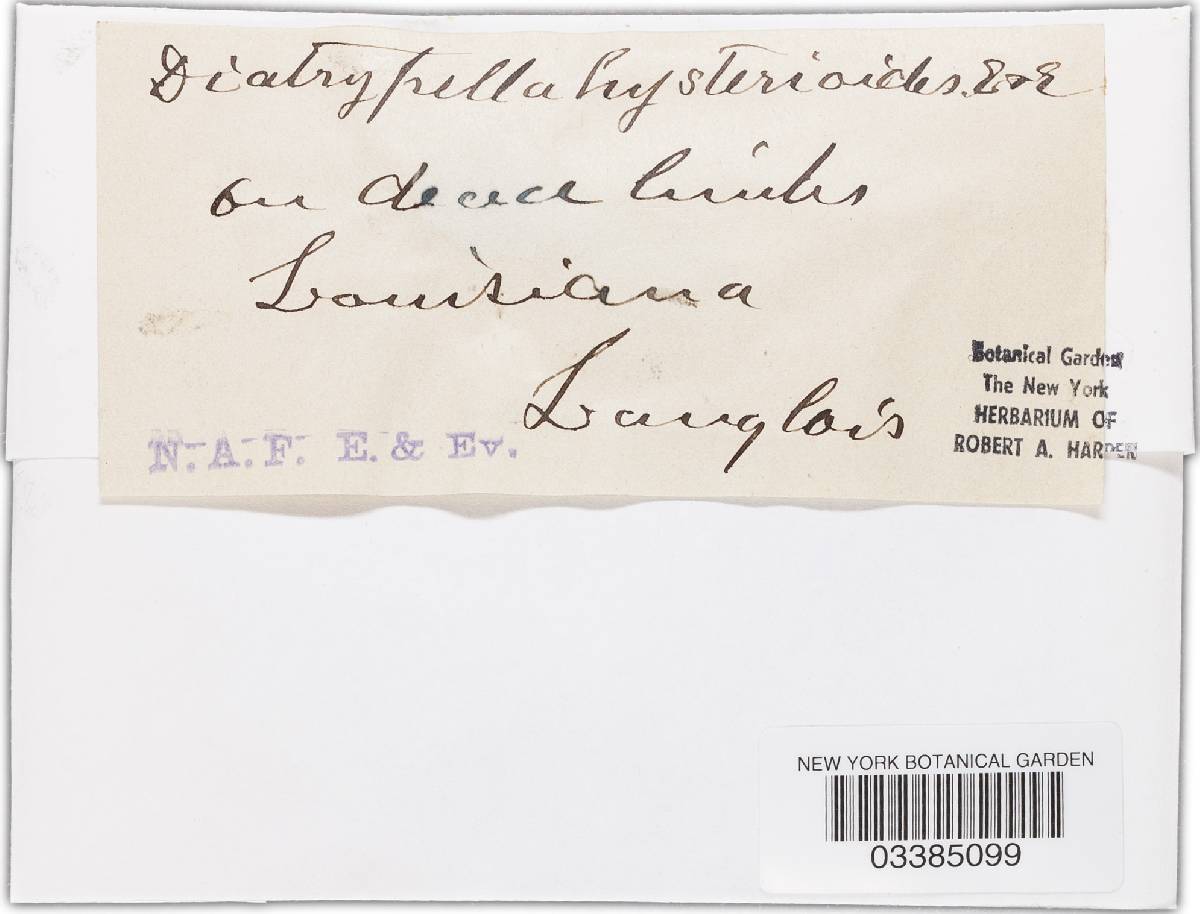 Diatrypella hysterioides. E & E
on dead limbs
Louisiana
Langlois
N. A. F. E. & Ev.
Botanical Garden
The New York
HERBARIUM OF
ROBERT A. HARPER
NEW YORK BOTANICAL GARDEN
03385099